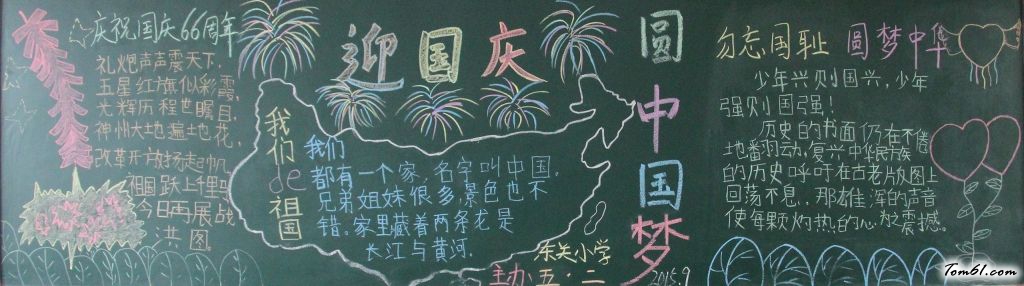 庆祝国庆66周年
礼炮声声震天下,
五星红旗似彩霞,
光辉历程世瞩目,
神州大地遍地花,
改革开放扬起帆,
祖国跃上
今日再展战
洪图
迎国庆
圆中国梦
我们de祖国
我们
都有一个家,名字叫中国,
兄弟姐妹很多,景色也不
错.家里藏着两条龙是
长江与黄河.
东关小学
主办:五·二
2015.9
勿忘国耻 圆梦中华
少年兴则国兴,少年
强则国强!
历史的书面仍在不倦
地翻动,复兴中华民族
的历史呼吁在古老版图上
回荡不息.那雄浑的声音
使每颗灼热的心为之震撼.
Tom61.com